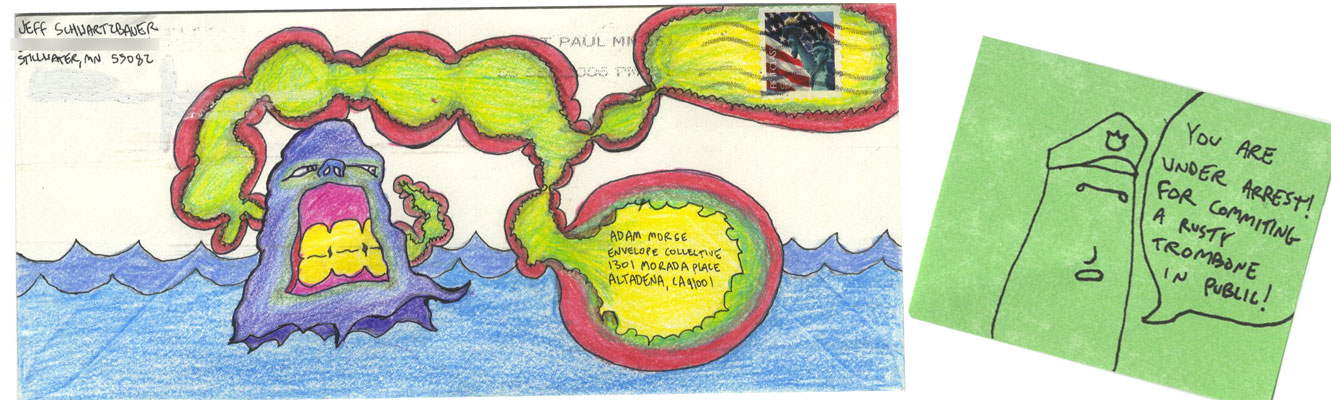 JEFF SCHWARTZBAUER
STILLWATER, MN 55082
T PAUL MN
005 PM
ADAM MORSE
ENVELOPE COLLECTIVE
1301 MORADA PLACE
ALTADENA, CA 91001
YOU ARE
UNDER ARREST!
FOR COMMITING
A RUSTY
TROMBONE
IN PUBLIC!